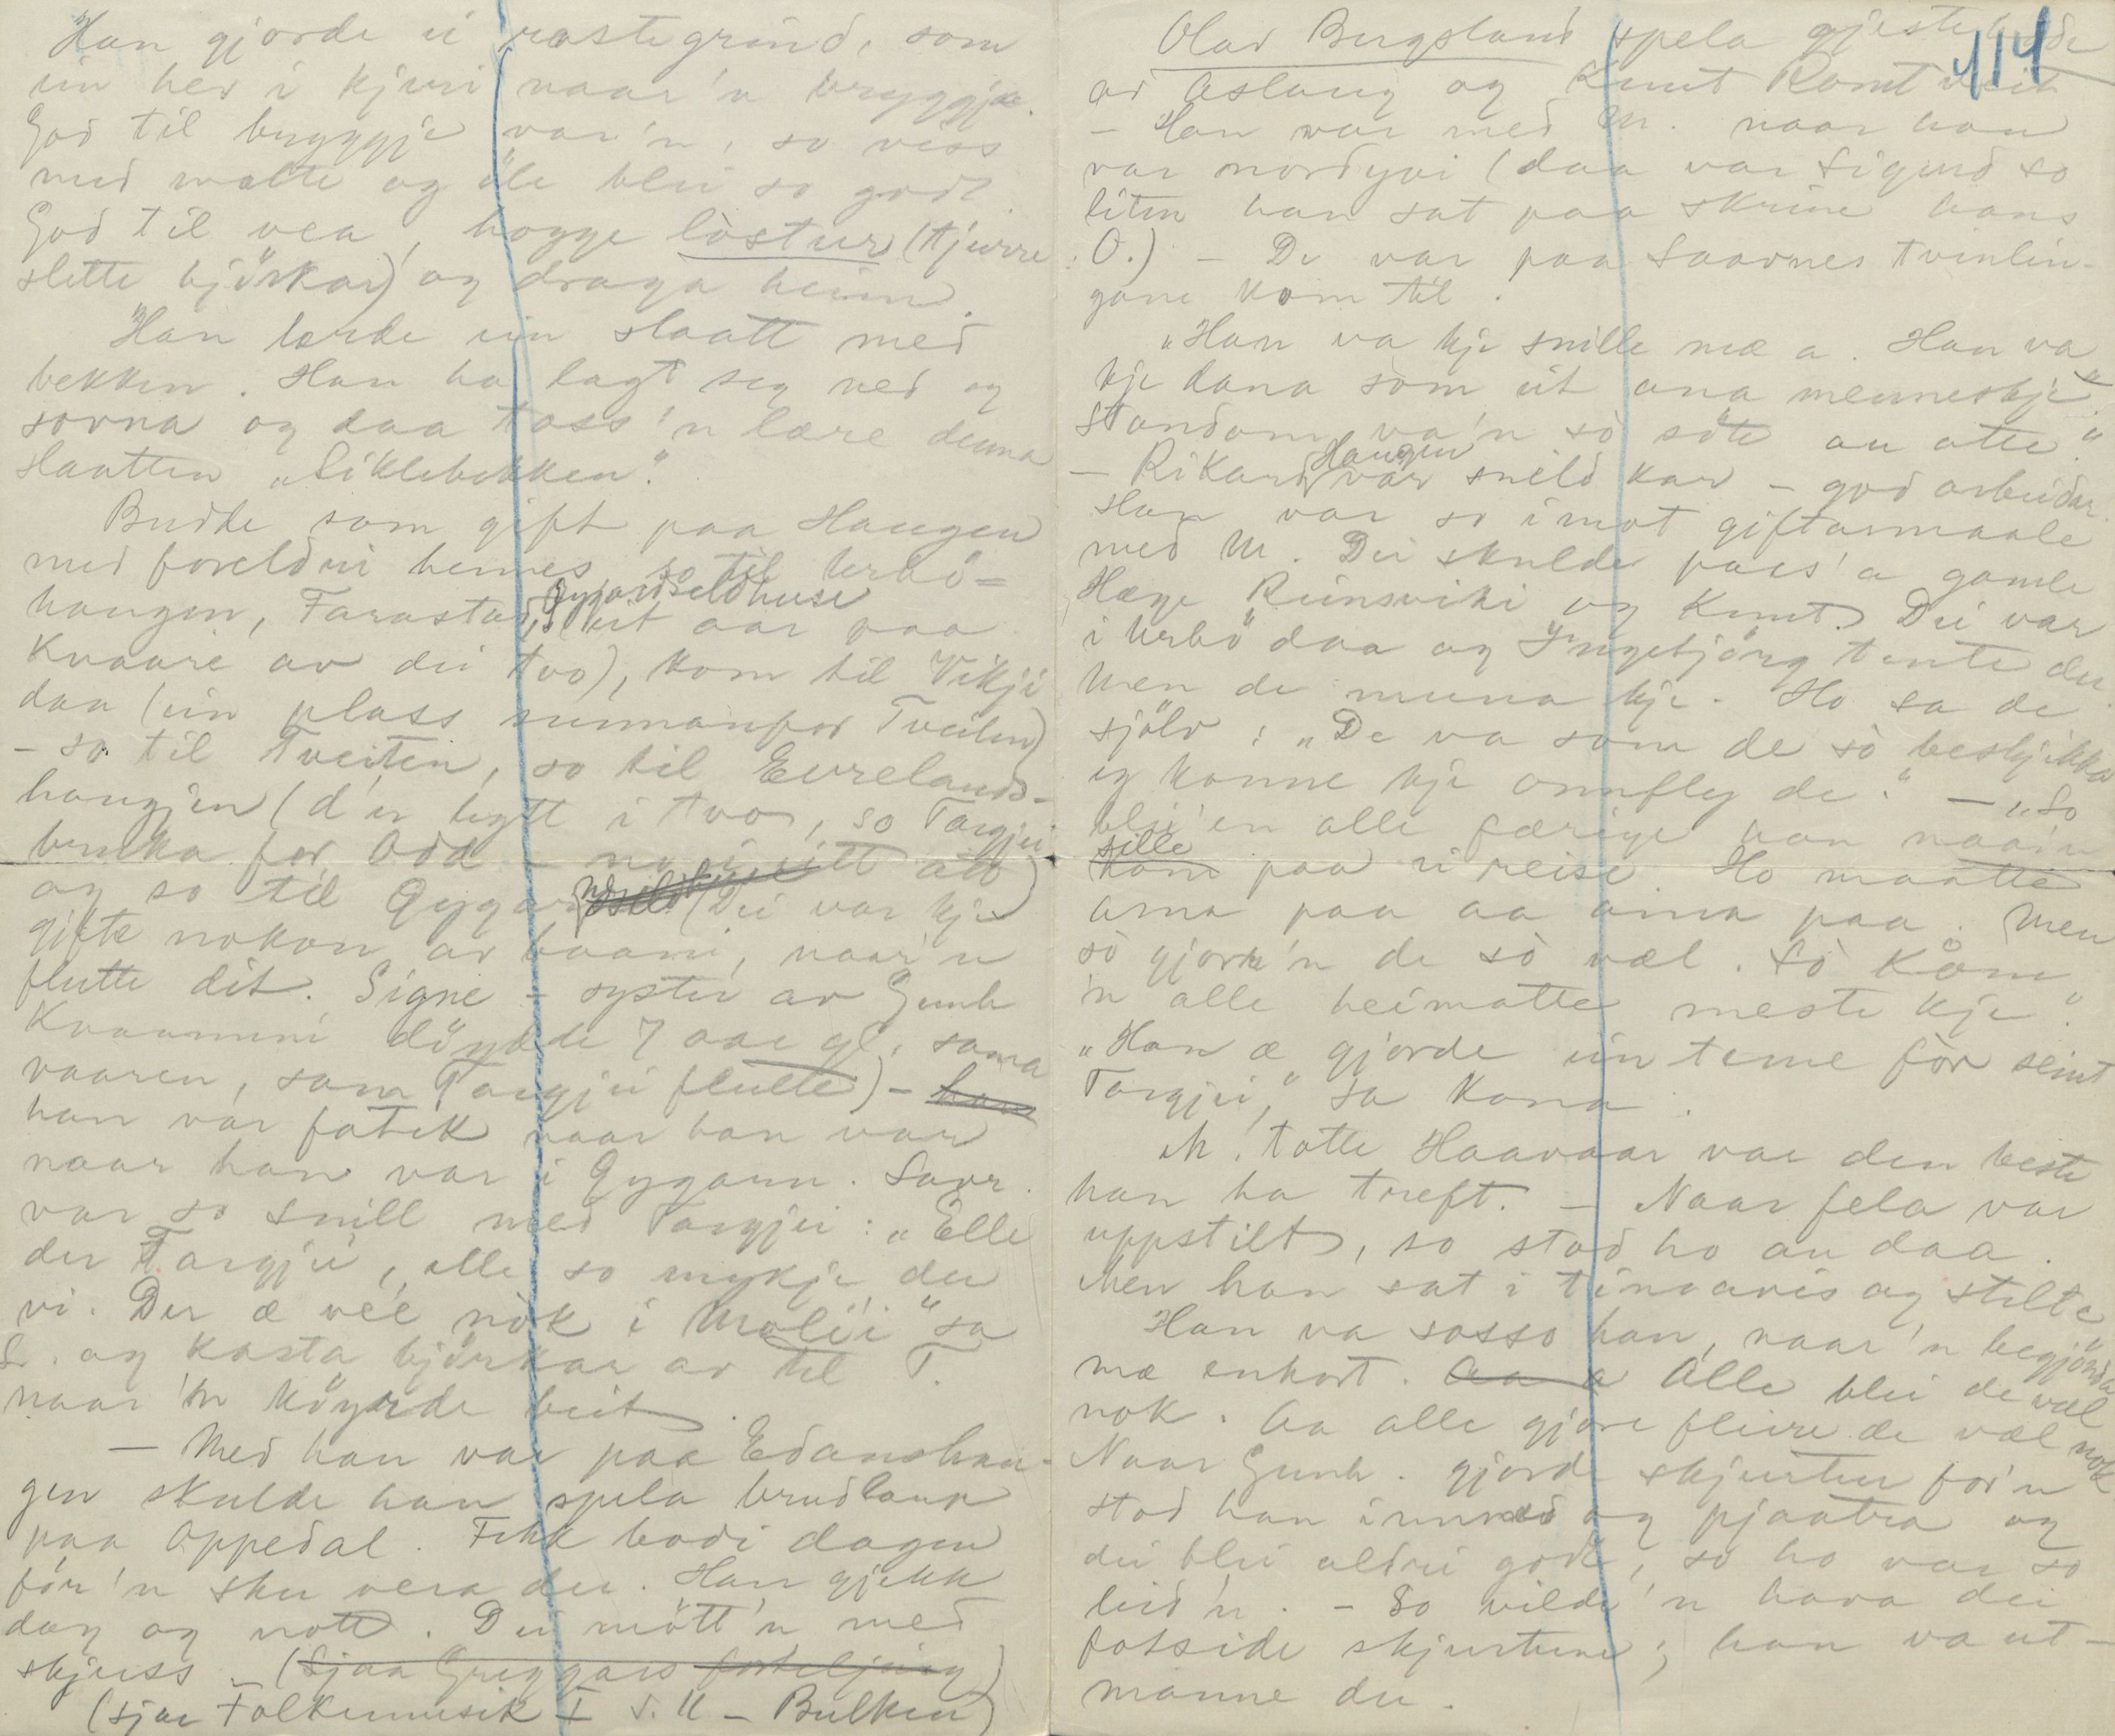 Han gjorde ei rostegrind, som
ein her i kjeri naar'n bryggja.
God til bryggje var'n, so viss
med malte og öle blei so godt
God til vea, hogge lòstur (tjurre
slette björkar) og draga heim.
Han lærde ein slaatt med
bekken. Han ha lagt seg ned og
sovna og daa toss'n lære denna
slaatten "Siklebekken".
Budde som gift paa Haugen
med foreldri hennes so til Urbö-
haugen, Farastad, Gygardseldhuse
(eit aar paa
Kvaare av dei tvo), kom til Vikji
daa (ein plass sunnanfor Tveiten)
- so til Tveiten, so til Eivrelands-
haugjen (d'er bytt i tvo, so Targjei
bruka for Odd - no i eitt att)
og so til Gygar (Dei var kje
gifte nokon av baani, naar'n
flutte dit. Signe - syster av Gunh
Kvaammi döydde 7 aar gl. sama
vaaren, som Targjei flutte) - hans
han var fatik naar han var
naar han var i Gygarn. Savr.
var so snill med Targjei: "Elle
der Targjei, elle so mykje du
vi. Der æ vél nòk i Moléi" sa
S. og kasta björkar av til T.
naar 'n köyrde beit.
- Med han var paa Edanshau-
gen skulde han spela brudlaup
paa Oppedal. Fekk bodi dagen
för'n sku vera der. Han gjekk
dag og nott. Dei mött'n med
skjuss - (Sjaa Greggars forteljing)
(sjaa Folkemusik I S. 11 - Bulken)
114
Olav Bergsland spela gjestebode
av Aslaug og Knut Romtveit
- Han var med M. naar han
var nordyvi (daa var Sigurd so
liten han sat paa skrine hans
O.) - De var paa Saarnes tvinlin-
gane kom til.
"Han va kje snille mæ a. Han va
kje dana som eit ana menneskje".
Stundom va'n sò söte au atte."
- Rikard Haugen var snild kar - god arbeidar.
Han var so imot giftarmaale
med M. Dei skulde pass'a gamle
Hæge Reinsviki og Knut. Dei var
i Urbö daa og Ingebjörg tente der
Men de muna kje. Ho sa de
sjölv: "De va som de sò beskjikka
eg konne kje onnfly de." - "So
blei'en alle færige han naar'n
sille
kom paa ei reise. Ho maatte
ama paa aa ama paa. Men
sò gjorde'n de sò væl. Sò kåm
'n alle heimatte meste kje".
"Han æ gjorde ein teme for seint
Targjei," sa Kona.
M. totte Haavaar var den beste
han ha treft. - Naar fela var
uppstilt, so stod ho au daa.
Men han sat i timavis og stilte
Han va sosso han, naar'n begjönda
mæ enkort. Aa a Alle blei de væl
nok. Aa alle gjore fleire de væl nok
Naar Gunh. gjorde skjurtur for'n
stod han innmed og pjaatra og
dei blei aldri gode, so ho var so
leid'n. - So vilde'n hava dei
fotside skjurtune; han va ut-
manne der.